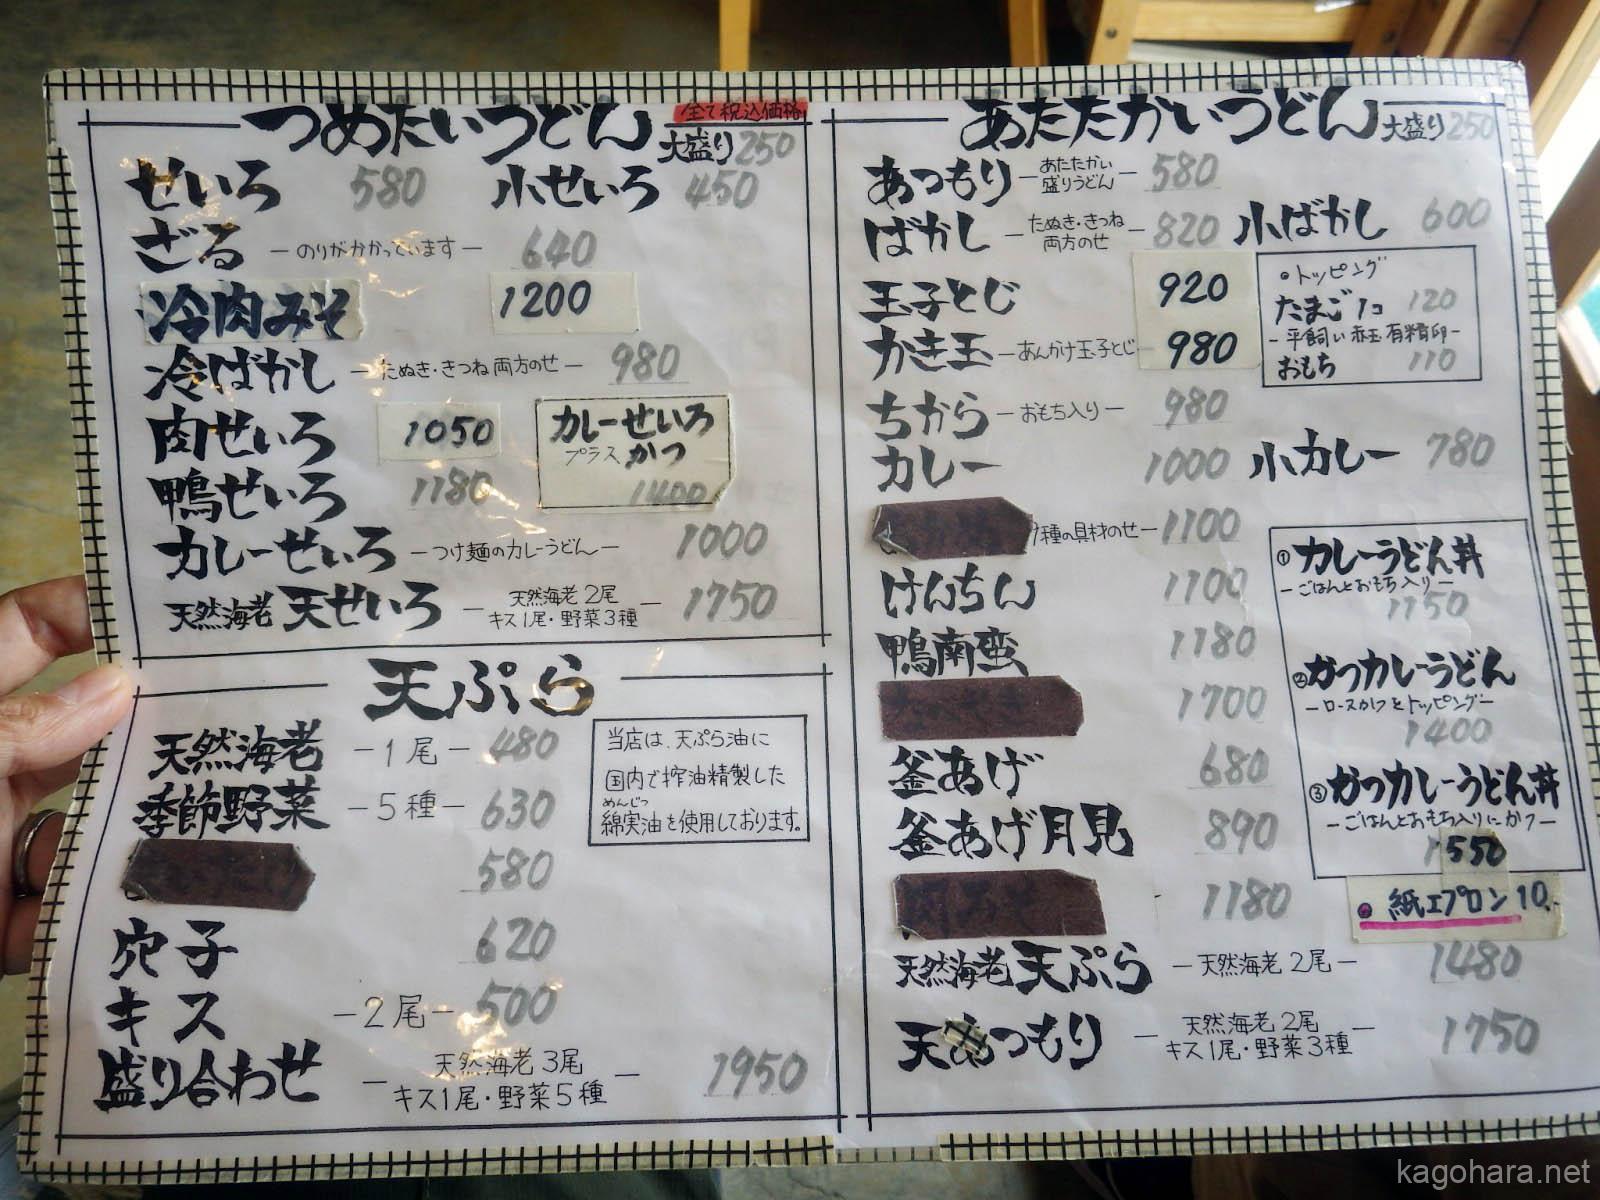 つめたいうどん
全て税込価格
大盛り250
せいろ 580 小せいろ 450
ざる ーのりがかかっていますー 640
冷肉みそ 1200
冷ばかし ーたぬき・きつね両方のせー 980
肉せいろ 1050
鴨せいろ 1180
カレーせいろ
プラス かつ
1400
カレーせいろ ーつけ麺のカレーうどんー 1000
天然海老 天せいろ ー天然海老2尾
キス1尾・野菜3種ー 1750
天ぷら
天然海老 ー1尾ー 480
季節野菜 ー5種ー 630
580
穴子 620
キス ー2尾ー 500
盛り合わせ ー天然海老3尾
キス1尾・野菜5種ー 1950
当店は、天ぷら油に
国内で搾油精製した
めんじつ
綿実油を使用しております。
あたたかいうどん
大盛り250
あつもり ーあたたかい
盛りうどんー 580
ばかし ーたぬき・きつね
両方のせー 820 小ばかし 600
玉子とじ 920
かき玉 ーあんかけ玉子とじ 980
ちから ーおもち入りー 980
カレー 1000 小カレー 780
種の具材のせー 1100
けんちん 1100
鴨南蛮 1180
1700
釜あげ 680
釜あげ月見 890
1180
天然海老 天ぷら ー天然海老2尾ー 1480
天あつもり ー天然海老2尾
キス1尾・野菜3種ー 1750
・トッピング
たまご1コ 120
ー平飼い赤玉有精卵ー
おもち 110
①カレーうどん丼
ーごはんとおもち入りー
1150
②かつカレーうどん
ーロースかつをトッピングー
1400
③かつカレーうどん丼
ーごはんとおもち入りにかつー
1550
紙エプロン 10.-
kagohara.net